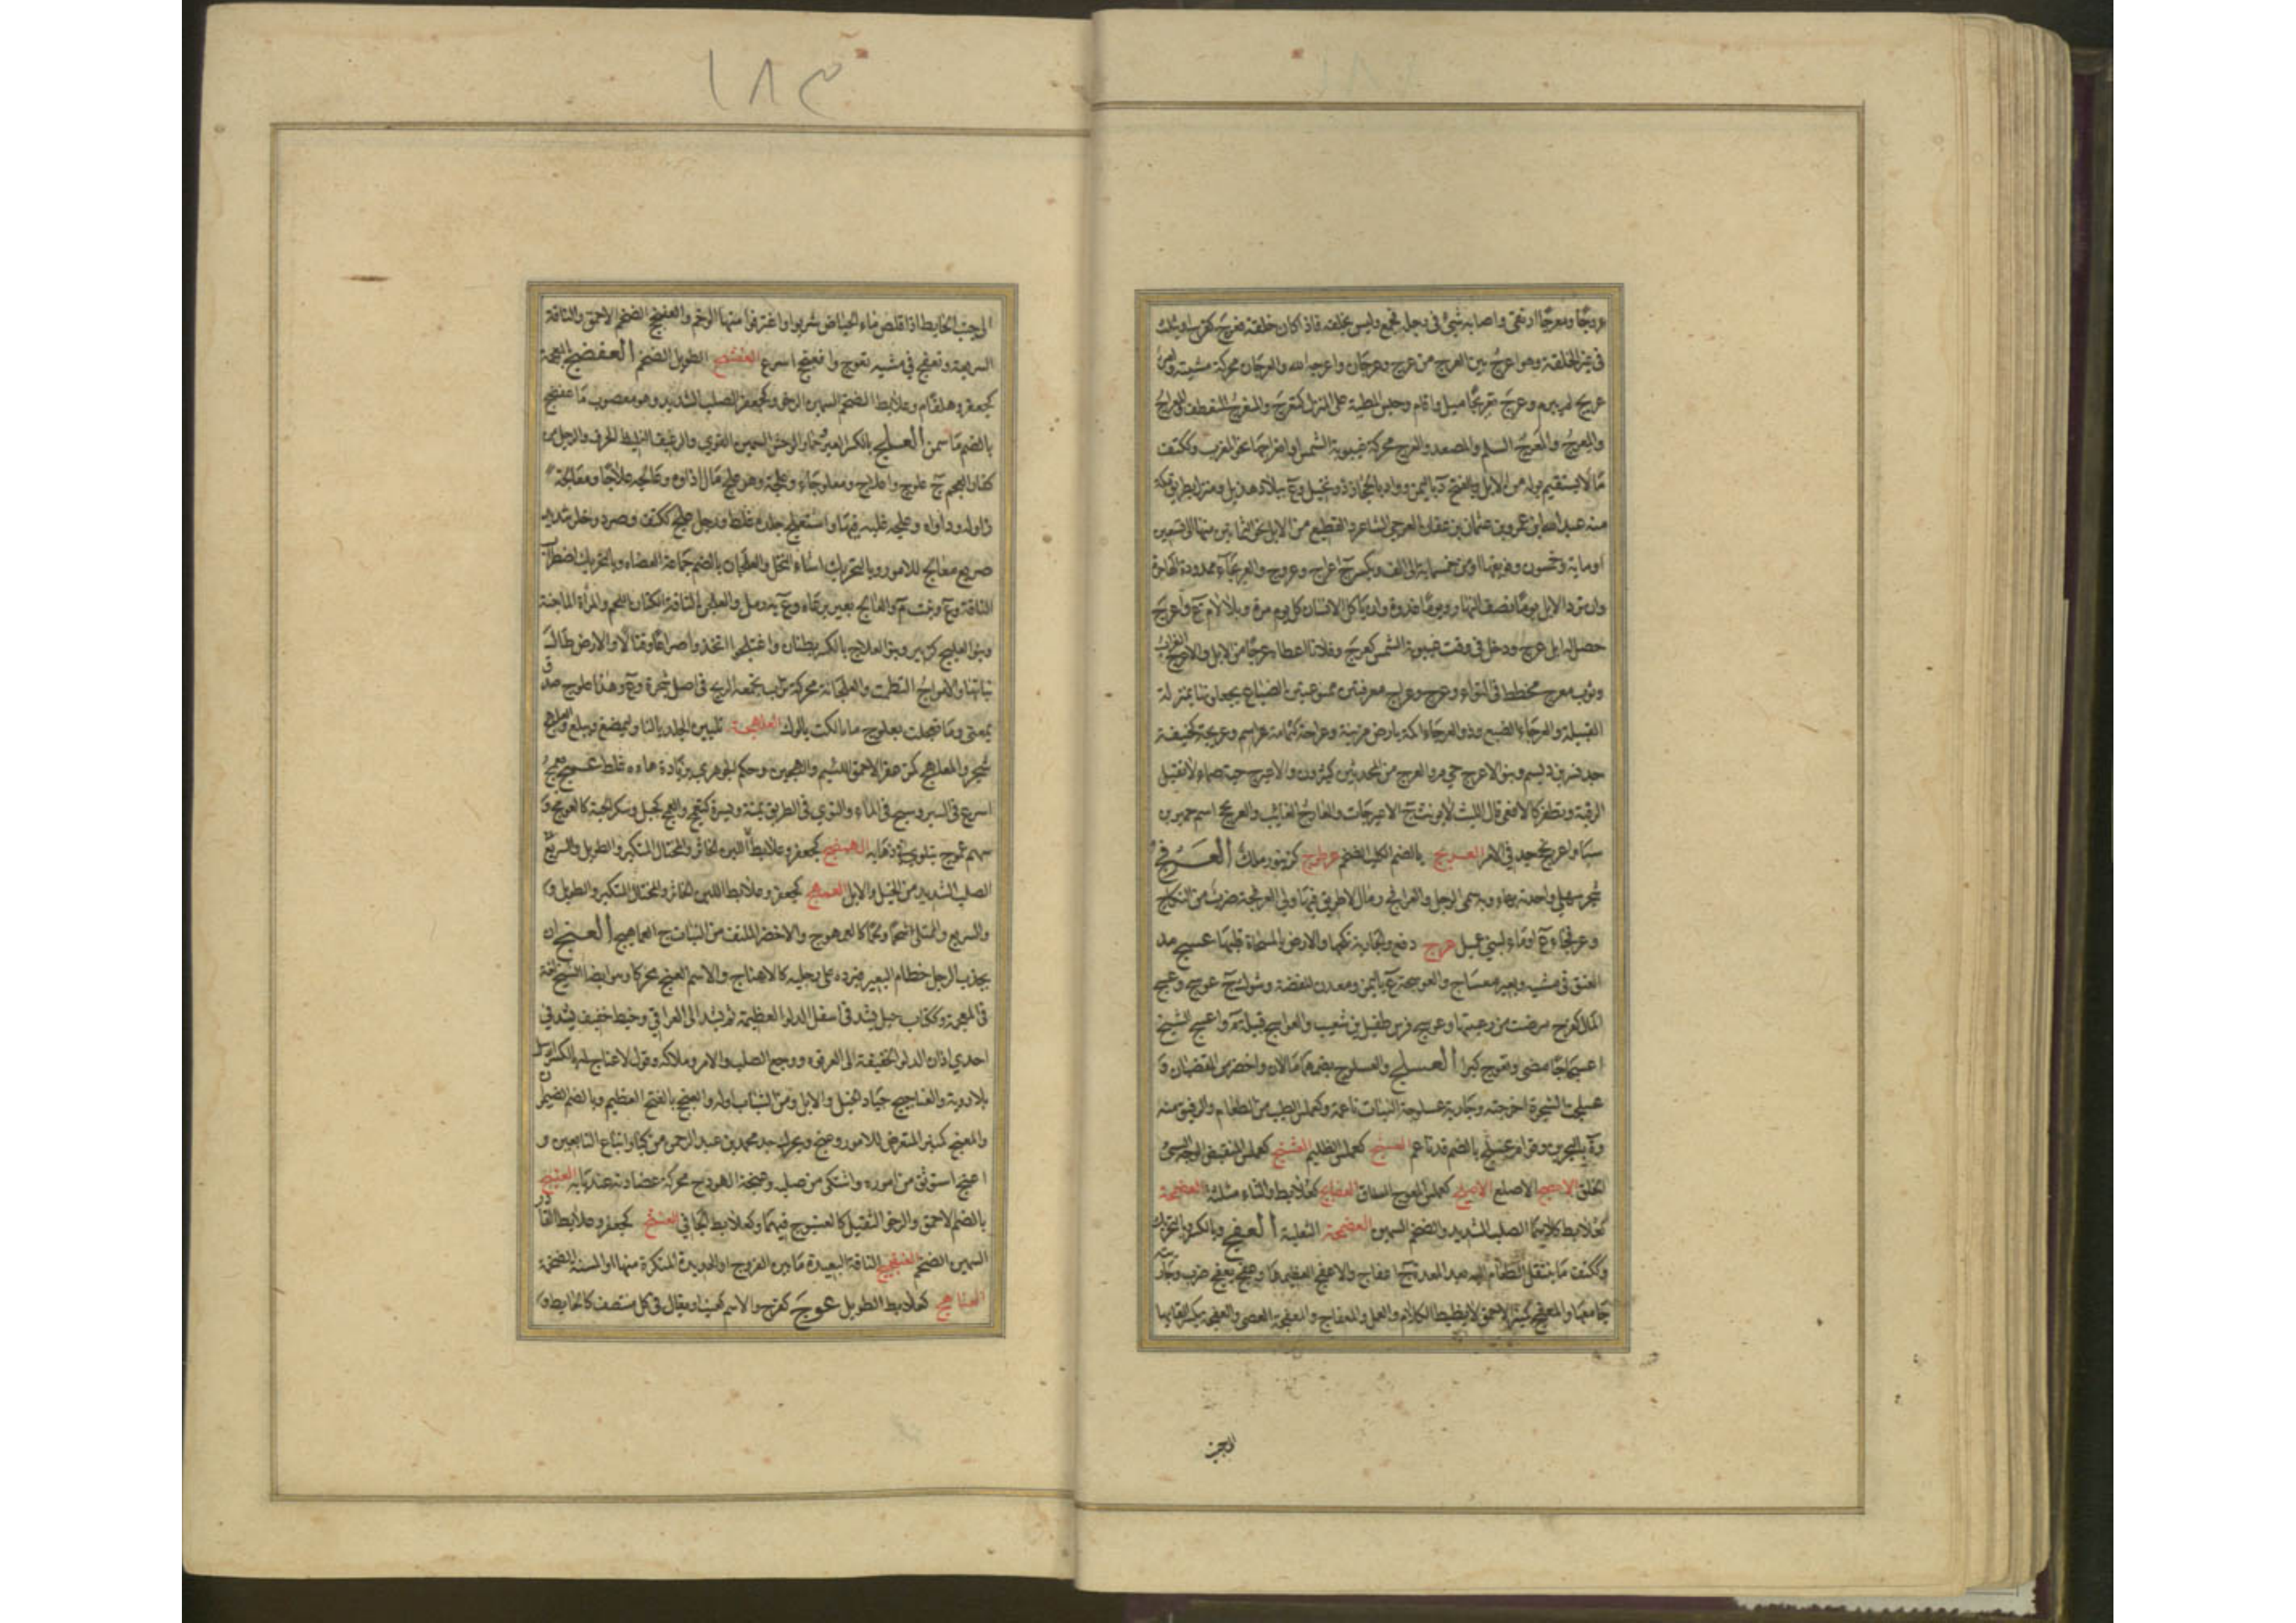 عروجًا ومعرجًا ارتقى واصابه شئ فى رجله فجمع وليس بخلقة فاذا كان خلقة فعرج كفرح او يثلث
فى غير الخلقة وهو اعرج بين العرج من عرج وعرجان واعرجه الله والعرجان محركة مشيته وامر
عريج لم يبرم وعرج تعريجًا ميل واقام وحبس المطية على المنزل كتعرج والمنعرج المنعطف والمعراج
والمعرج والمعرج السلم والمصعد والعرج محركة غيبوبة الشمس او انعراجها نحو المغرب وككتف
ما لا يستقيم بوله من الابل وبالفتح د باليمن وواد بالحجاز ذو نخيل وع ببلاد هذيل ومنزل بطريق مكة
منه عبد الله بن عمرو بن عثمان بن عفان العرجى الشاعر والقطيع من الابل نحو الثمانين او منها الى تسعين
او ماية وخمسون وفويقها او من خمسماية الى الف ويكسر ج اعراج وعروج والعريجاء ممدودة الهاجرة
وان ترد الابل يومًا نصف النهار ويومًا غدوة وان ياكل الانسان كل يوم مرة وبلا لام ع واعرج
حصل له ابل عرج ودخل فى وقت غيبوبة الشمس كعرج وفلانا اعطاه عرجًا من الابل والاعرج الغراب
وثوب معرج مخطط فى التواء وعرج وعراج معرفتين ممنوعتين الضباع يجعلونها بمنزلة
القبيلة والعرجاء الضبع وذو العرجاء اكمة بارض مزينة وعراجة كثمامة اسم وعريجة كحنيفة
جد نسر بن ديسم وبنو الاعرج حي م والعرج من المحدثين كثيرون والاعيرج حية صماء لا تقبل
الرقية وتطفر كالافعى قال الليث لا يونث ج الاعيرجات والعارج الغايب والعرنجج اسم حمير بن
سبا واعرنجج جد فى الامر العربج بالضم الكلب الضخم عرطوج كزنبور ملك العرفج
شجر سهلي واحدته بهاء وبه سمى الرجل والعرافج رمال لا طريق فيها ولي العرفجة ضرب من النكاح
وعرفجاء ع او ماء لبني عميل عزج دفع والجارية نكحها والارض بالمسحاة قلبها عسج مد
العنق فى مشيه وبعير معساج والعوسجة ع باليمن ومعدن للفضة وشوك ج عوسج وعسج
المال كفرح مرضت من رعيتها وعوسج فرس طفيل بن شعيب والعواسج قبيلة م واعسج الشيخ
اعسجاجًا مضى وتعوج كبرا العسلج والعسلوج بضمهما ما لان واخضر من القضبان و
عسلجت الشجرة اخرجته وجارية عسلوجة النبات ناعمة وكعملس الطيب من الطعام والرقيق منه
وة بالبحرين وقوام عسلج بالضم قد ناعم العسنج كعملس الظليم العشنج كعملس المتقبض الوجه السئ
الخلق الاعصج الاصلع الاعصلج كعملس المعوج الساق العضافج كعلابط والثاء مثلثة العضفجة
كعلابط كلاهما الصلب الشديد والضخم السمين العضمجة الثعلبة العفج وبالكسر وبالتحريك
وككتف ما ينتقل الطعام اليه بعد المعدة ج اعفاج والاعفج العظيمها وعفج يعفج ضرب وجاريته
جامعها والمعفج كمنبر الاحمق لا يضبط الكلام والعمل والمعفاج والمعفجة العصى والعفجة بكسر الفايها
الى جنب
الى جنب الحايط اذا قلص ماء الحياض شربوا واغترفوا منها الوخم والعفنجج الضخم الاحمق والناقة
السريعة وتعفج فى مشيه تعوج واعفنجج اسرع العفشج الطويل الضخم العفضج بالمعجمة
كجعفر وهلقام وعلابط الضخم السمين الرخى وكجعفر الصلب الشديد وهو معصوب ما عفضج
بالضم ما سمن العلج بالكسر العير حمار الوحش السمين القوي والرغيف الغليظ الحرف والرجل من
كفار العجم ج علوج واعلاج ومعلوجاء وعلجة وهو علج مال ازاوه وعالجه علاجًا ومعالجة
زاوله وداواه وعلجه غلبه فيها واستعلج جلده غلظ ورجل علج ككتف وصرد وخلر شديد
صريع معالج للامور وبالتحريك اشاء النخل والعلجان بالضم جماعة العضاه وبالتحريك اضطراب
الناقة وع ونبت م والعالج بعير يرعاه وع به رمل والعلجن الناقة الكناز اللحم والمراة الماجنة
وبنو العليج كزبير وبنو العلاج بالكسر بطنان واعتلجوا اتخذوا صراعًا وقتالا والارض طال
نباتها والامواج التطمت والعلجانة محركة تراب تجمعه الريح فى اصل شجرة وع وهذا علوج صدق
بمعنى وما تعجلت بعلوج ما تالكت بالوك العلهجة تليين الجلد بالنار ليمضغ ويبلع والعلهج
شجر والمعلهج كمزعفر الاحمق اللئيم والهجين وحكم الجوهري بزيادة هاءه غلط عمج يعمج
اسرع فى السير وسبح فى الماء والتوى فى الطريق يمنة ويسرة كتعمج والعمج كجبل وسكر الحية كالعومج و
سهم عموج يتلوى فى ذهابه العمضج كجعفر وعلابط اللبن الخاثر والمختال المتكبر والطويل والسريع
الصلب الشديد من الخيل والابل العمهج كجعفر وعلابط اللبن الخاثر والمختال المتكبر والطويل و
والسريع والممتلئ لحمًا وشحمًا كالعمهوج والاخضر الملتف من النبات ج العماهيج العنج ان
يجذب الرجل خطام البعير فيرده على رجليه كالاعناج والاسم العنج محركا ومن ايضا الشيخ لغة
فى المعجمة وككتاب حبل يشد فى اسفل الدلو العظيمة ثم يشد الى العراقي وخيط خفيف يشد فى
احدي اذان الدلو الخفيفة الى العرقوه ووجع الصلب والامر وملاكه وقول لا عناج له بالكسر ارسل
بلا روية والعناجيج جياد الخيل والابل ومن الشباب اوله والعنج بالفتح العظيم وبالضم الضيمران
والمعنج كمنبر المتعرض للامور وعنج ويحرك جد محمد بن عبد الرحمن من كبار اتباع التابعين و
اعنج استوثق من اموره واشتكى من صلبه وعنجة الهودج محركة عضادته عند بابه العنبج
بالضم الاحمق والرخو الثقيل كالعنبوج فيهما وكعلابط الجافى العنثج كجعفر وعلابط القادر
السمين الضخم العنفجيج الناقة البعيدة ما بين الفروج او الحديدة المنكرة منها او المسنة الضخمة
العناهج كعلابط الطويل عوج كفرح والاسم كعنب او يقال فى كل منتصف كالحايط و
١٨٣